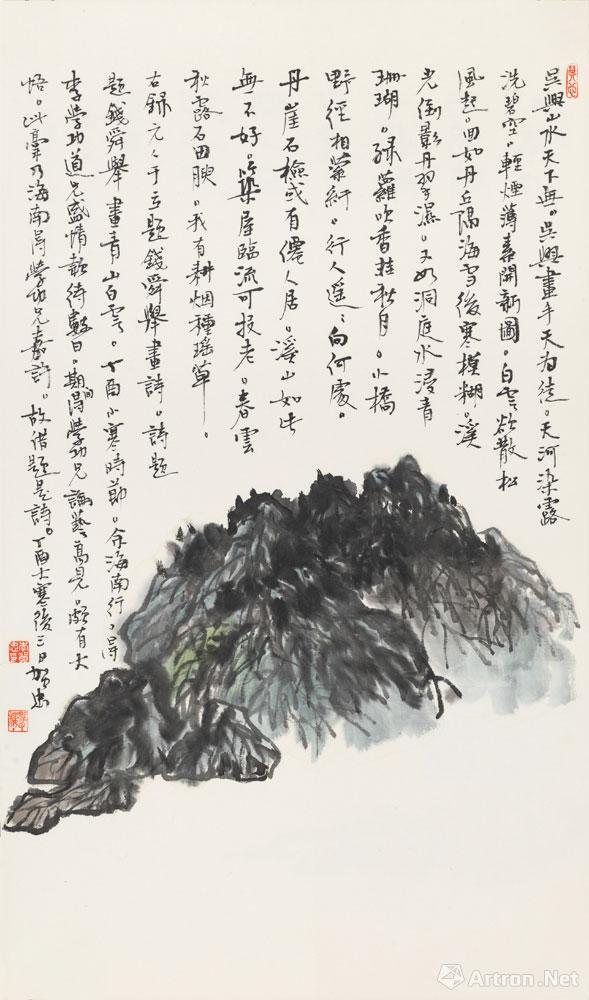 吴興山水天下無。吴興畫手天為徒。天河染露
洗碧空。輕煙薄素開新圖。白雲欲散松
風起。回如丹丘隔海雪後寒模糊。溪
光倒影丹翠濕。又如洞庭水浸青
珊瑚。緑蘿吹香挂秋月。小橋
野徑相縈紆。行人遥〻向何處。
丹崖石檢或有僊人居。溪山如此
無不好。築屋臨流可投老。春雲
秋露石田腴。我有耕烟種瑶草。
右録元人于立題錢舜舉畫詩。詩題
題錢舜舉畫青山白雲。丁酉小寒時節。余海南行。得
李學功道兄盛情款待數日。期間得學功兄論藝高見。頗有大
悟。此稾乃海南得學功兄嘉許。故借題是詩。丁酉大寒後三日
Artron.Net